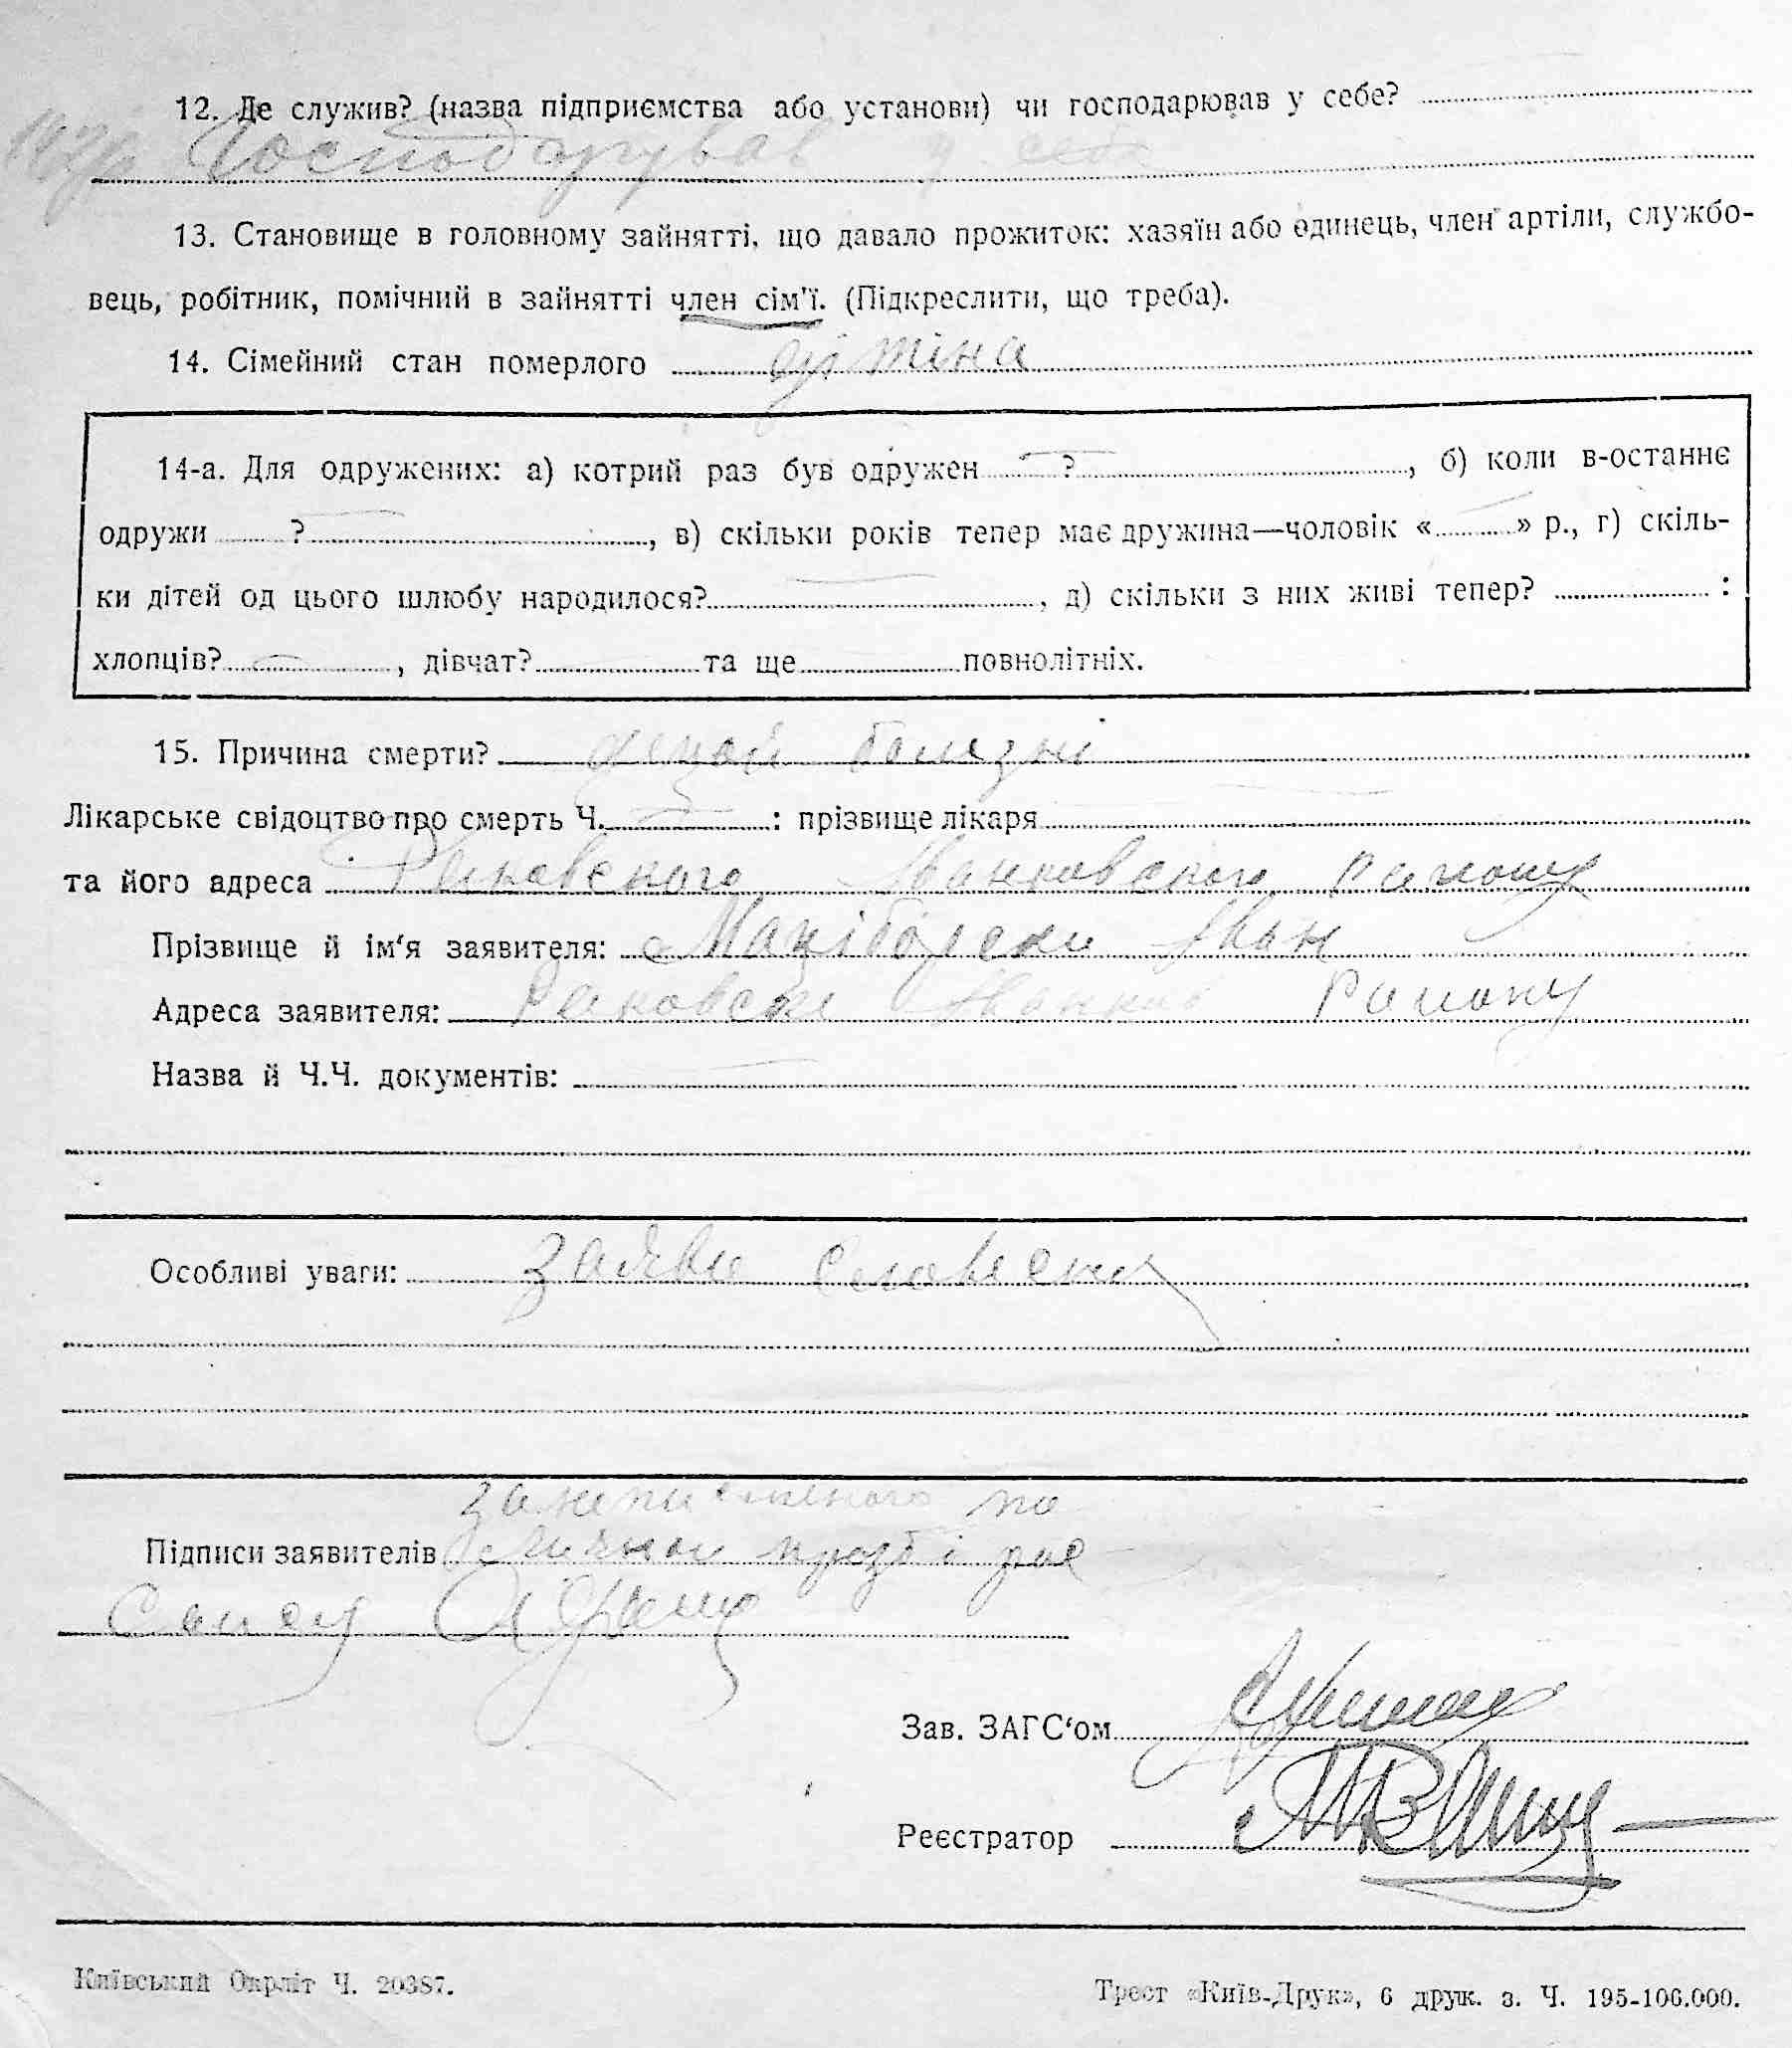 12. Де служив? (назва підприємства або установи) чи господарював у себе?
Господарував у себе
13. Становище в головному зайнятті, що давало прожиток: хазяїн або одинець, член артіли, службо-
вець, робітник, помічний в зайнятті член сім'ї. (Підкреслити, що треба).
14. Сімейний стан померлого дітіна
14-а. Для одружених: а) котрий раз був одружен ?, б) коли в-останнє
одружи ?, в) скільки років тепер має дружина—чоловік « » р., г) скіль-
ки дітей од цього шлюбу народилося?, д) скільки з них живі тепер? :
хлопців?, дівчат? та ще повнолітніх.
15. Причина смерти? болезні
Лікарське свідоцтво про смерть Ч. : прізвище лікаря
та його адреса Іванковского району
Прізвище й ім'я заявителя: Маціборски Іван
Адреса заявителя: Району
Назва й Ч.Ч. документів:
Особливі уваги: Заяви словесни
по
Підписи заявителів личной прозбі рос
Зав. ЗАГС'ом
Реєстратор
Київський Окрліт Ч. 20387.
Трест «Київ-Друк», 6 друк. з. Ч. 195-100.000.